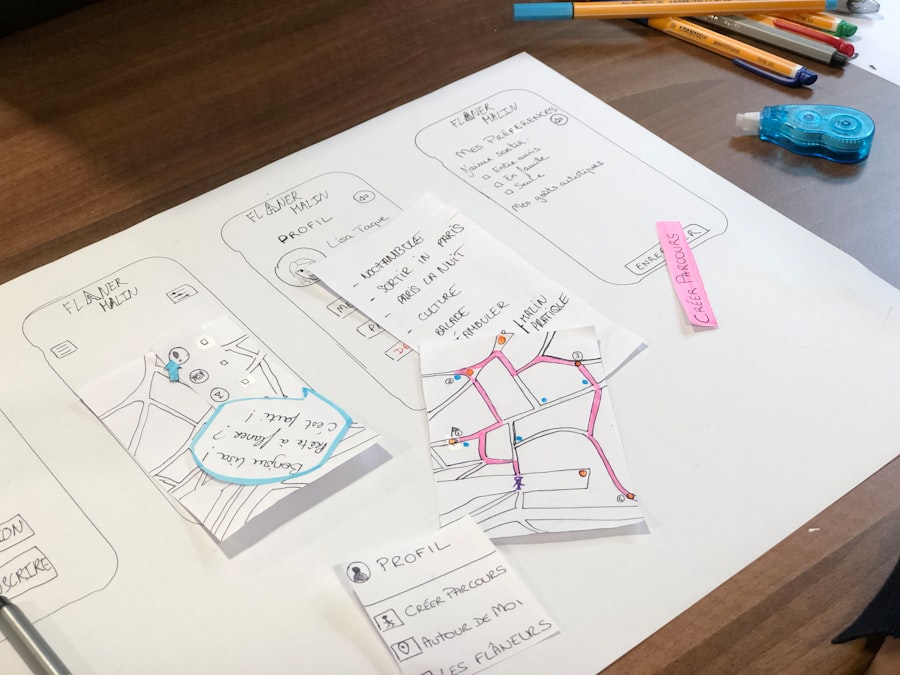 FLÂNER
MALIN
Bonjour Lisa!
Prête à flâner?
C'est parti!
FLÂNER
MALIN
PROFIL
Lisa Taque
- NOCTAMBULE
- SORTIR IN PARIS
- PARIS LA NUIT
- CULTURE
BALADE
MALIN
PRATIQUE
FLÂNER
MALIN
MES PRÉFÉRENCES
J'aime sortir:
Entre amis
En famille
Seule
Mes goûts artistiques
CRÉER PARCOURS
PROFIL
CRÉER PARCOURS
AUTOUR DE MOI
LES FLÂNEURS